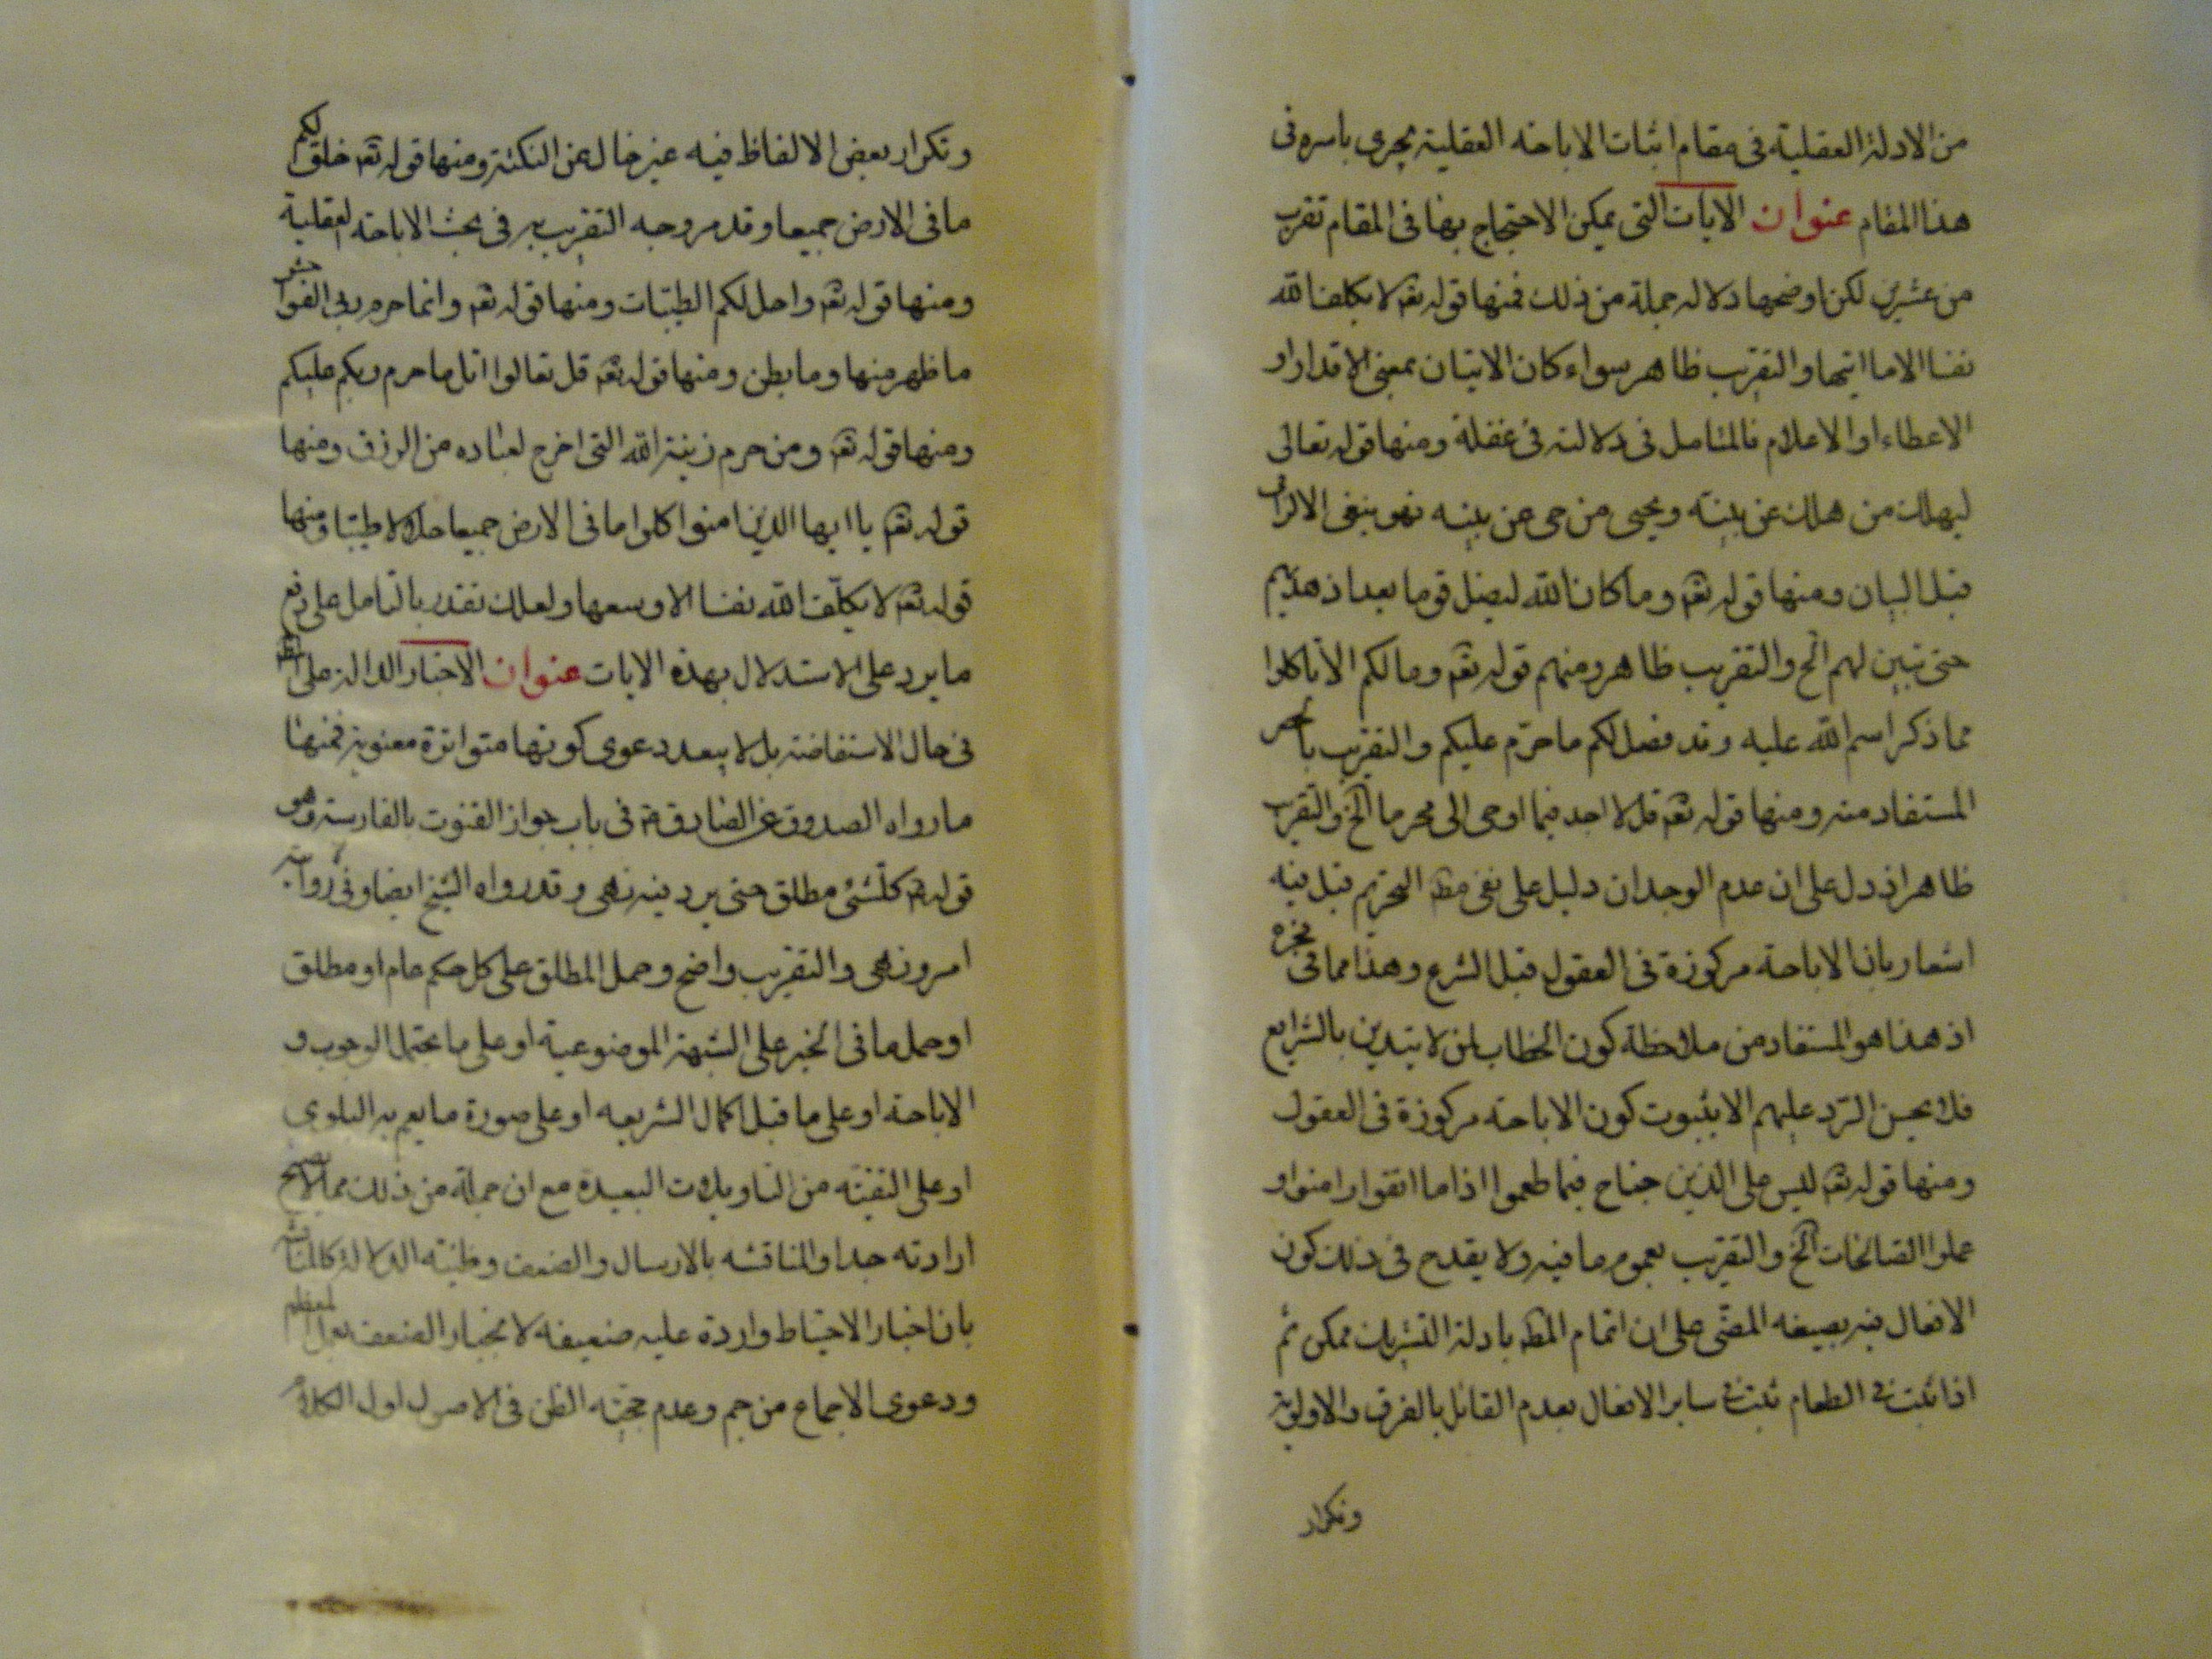 من الادلة العقلية فى مقام اثبات الاباحة العقلية يجرى باسره فى
هذا المقام عنوان الايات التى يمكن الاحتجاج بها فى المقام تقرب
من عشرين لكن اوضحها دلالة جملة من ذلك فمنها قوله تعه لا يكلف الله
نفسا الا ما اتيها والتقريب ظاهر سواء كان الاتيان بمعنى الاقدار او
الاعطاء او الاعلام فالمتامل فى دلالته فى غفلة ومنها قوله تعالى
ليهلك من هلك عن بينة ويحيى من حى عن بينه فهو ينفى الالزام
قبل البيان ومنها قوله تعه وما كان الله ليضل قوما بعد اذ هديهم
حتى تبين لهم الخ والتقريب ظاهر ومنهم قوله تعه ومالكم الا تاكلوا
مما ذكر اسم الله عليه وقد فصل لكم ما حرّم عليكم والتقريب بالحصر
المستفاد منه ومنها قوله تعه قل لا اجد فيما اوحى الى محرما الخ والتقريب
ظاهر اذ دل على ان عدم الوجدان دليل على نفى مط التحريم قبل فيه
اشعار بان الاباحة مركوزة فى العقول قبل الشرع وهذا مما فى
اذ هذا هو المستفاد من ملاحظة كون الخطاب لمن لا يتدين بالشرايع
فلا يحسن الرّد عليهم الا بثبوت كون الاباحة مركوزة فى العقول
ومنها قوله تعه ليس على الذين جناح فيما طعموا اذا ما اتقوا وامنوا و
عملوا الصالحات الخ والتقريب بعموم ما فيه ولا يقدح فى ذلك كون
الافعال فيه بصيغه المضى على ان اتمام المط بادلة التشريك ممكن ثم
اذا ثبت فى الطعام ثبت فى ساير الافعال بعدم القائل بالفرق والاولوية
وتكرار
وتكرار بعض الالفاظ فيه غير خال عن النكتة ومنها قوله تعه خلق لكم
ما فى الارض جميعا وقد مر وجه التقريب به فى بحث الاباحة العقلية
ومنها قوله تعه واحل لكم الطيّبات ومنها قوله تعه وانما حرم ربى الفواحش
ما ظهر منها وما بطن ومنها قوله تعه قل تعالوا اتل ما حرم ربكم عليكم
ومنها قوله تعه ومن حرم زينة الله التى اخرج لعباده من الرزق ومنها
قوله تعه يا ايها الذين امنوا كلوا ما فى الارض جميعا حلالا طيّبا ومنها
قوله تعه لا يكلّف الله نفسا الا وسعها ولعلك تقدر بالتامل على رفع
ما يرد على الاستدلال بهذه الايات عنوان الاخبار الدالة على
فى حال الاستفاضة بل لا يبعد دعوى كونها متواترة معنوية فمنها
ما رواه الصدوق عن الصادق ع فى باب جواز القنوت بالفارسية وهو
قوله ع كلّ شئ مطلق حتى يرد فيه نهى وقد رواه الشيخ ايضا وفى رواية
امر ونهى والتقريب واضح وحمل المطلق على كل حكم عام او مطلق
او حمل ما فى الخبر على الشبهة الموضوعية او على ما يحتمل الوجوب و
الاباحة او على ما قبل اكمال الشريعه او على صورة ما يعم به البلوى
او على التقيّه من التاويلات البعيدة مع ان جملة من ذلك مما لا يصح
ارادته جدا والمناقشه بالارسال والضعف وظنية الدلالة كالمناقشة
بان اخبار الاحتياط واردة عليه ضعيفه لانجبار الضعف بعمل المعظم
ودعوى الاجماع من جم وعدم حجّيه الظن فى الاصول اول الكلام